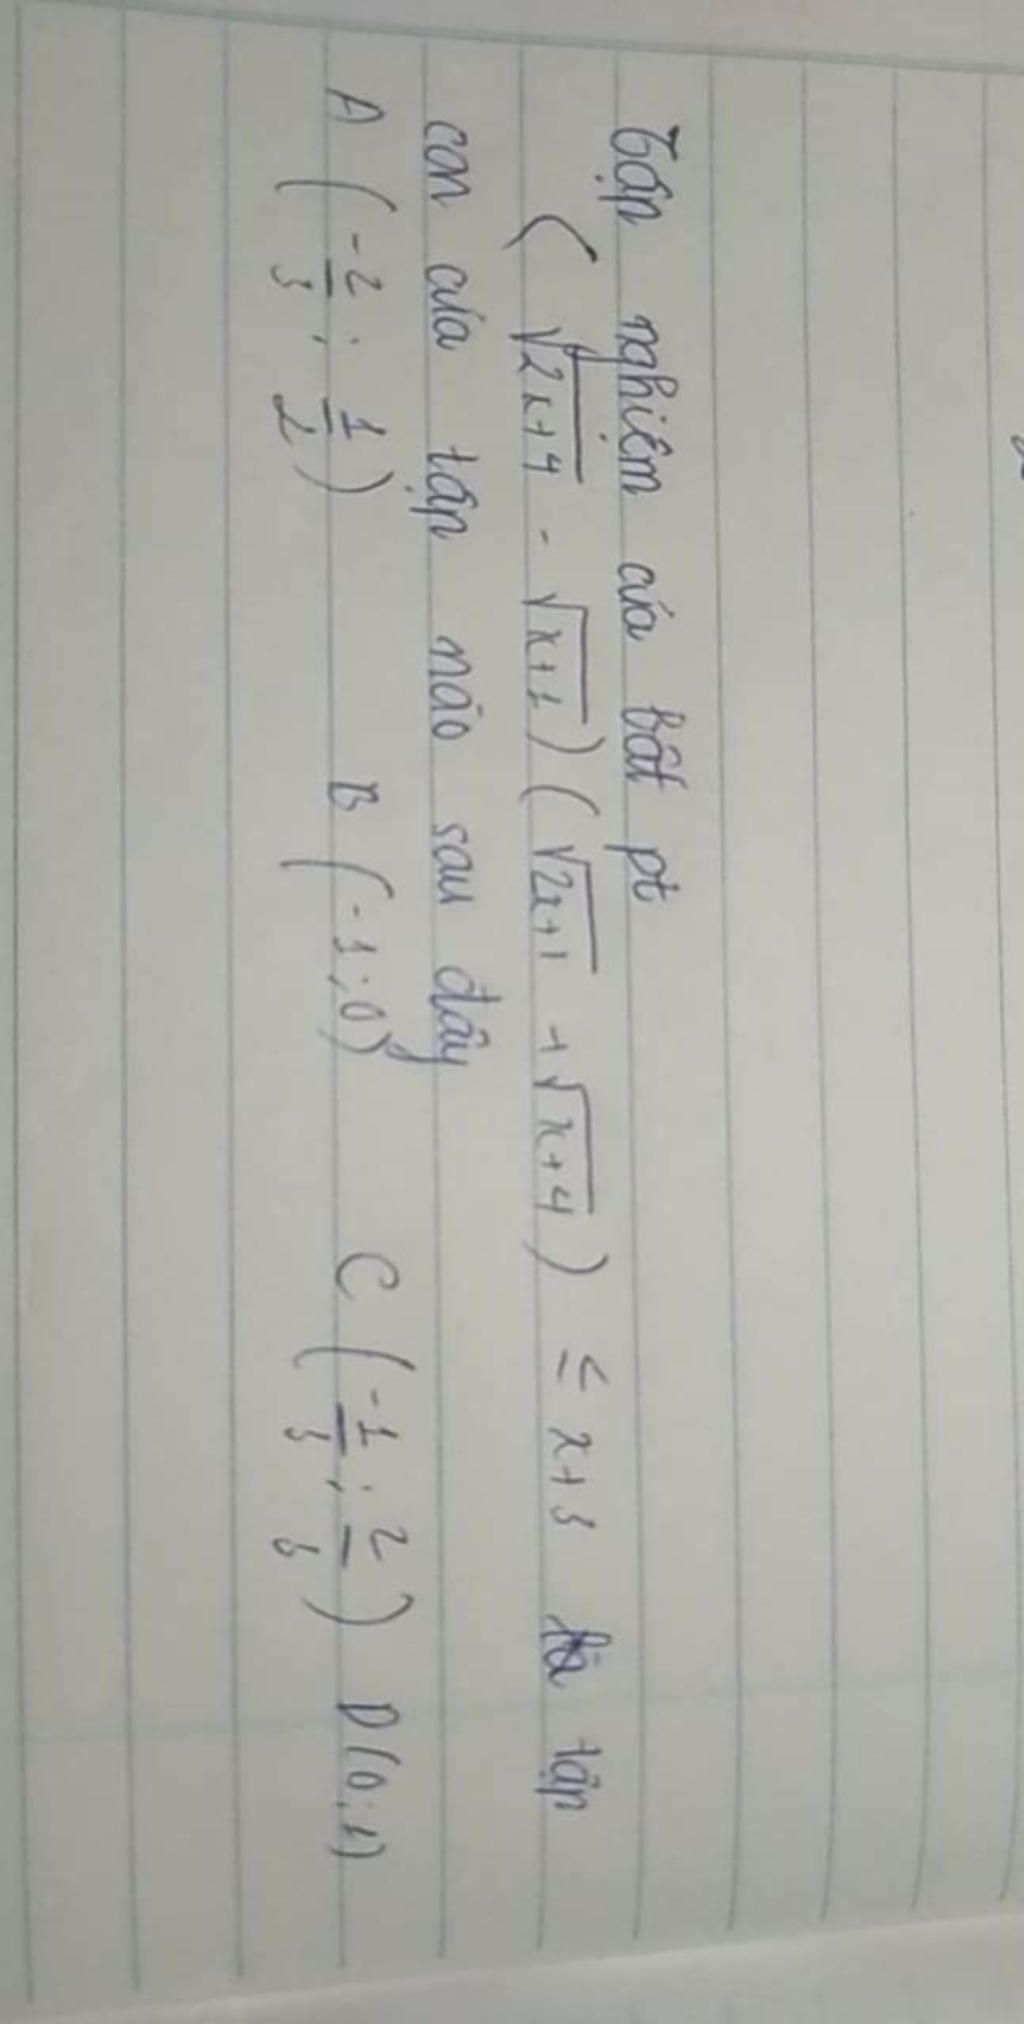 Tập nghiệm của bất pt
( √2x+4 - √x+1 ) ( √2x+1 + √x+4 ) ≤ x+3 là tập
con của tập nào sau đây
A ( -2/3 ; 1/2 ) B ( -1 ; 0 ) C ( -1/3 ; 2/3 ) D ( 0 ; 1 )